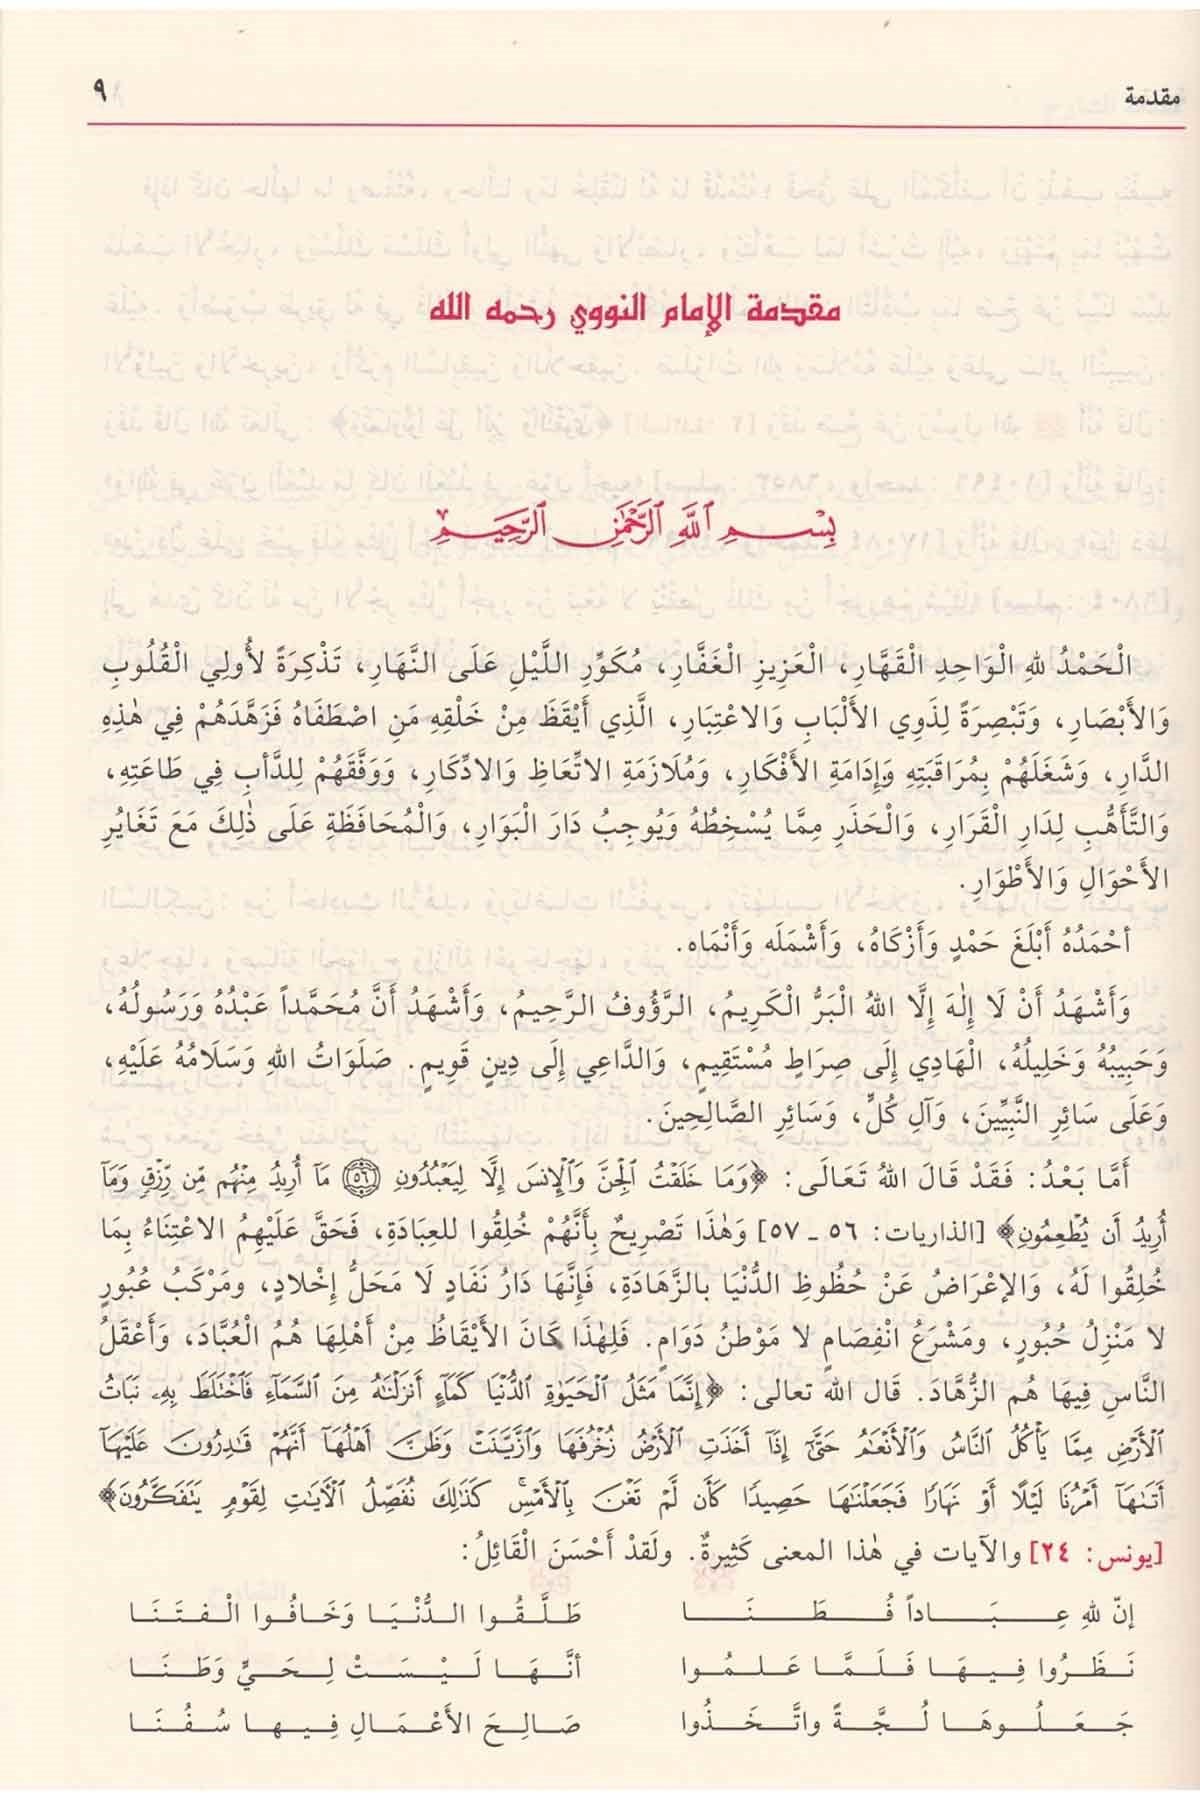 مقدمة ٩
مقدمة الإمام النووي رحمه الله
بِسْمِ ٱللَّهِ ٱلرَّحْمَٰنِ ٱلرَّحِيمِ
الْحَمْدُ للهِ الْوَاحِدِ الْقَهَّارِ، الْعَزِيزِ الْغَفَّارِ، مُكَوِّرِ اللَّيْلِ عَلَى النَّهَارِ، تَذْكِرَةً لأُولِي الْقُلُوبِ
وَالأَبْصَارِ، وَتَبْصِرَةً لِذَوِي الأَلْبَابِ وَالاعْتِبَارِ، الَّذِي أَيْقَظَ مِنْ خَلْقِهِ مَنِ اصْطَفَاهُ فَزَهَّدَهُمْ فِي هٰذِهِ
الدَّارِ، وَشَغَلَهُمْ بِمُرَاقَبَتِهِ وَإِدَامَةِ الأَفْكَارِ، وَمُلَازَمَةِ الاتِّعَاظِ وَالادِّكَارِ، وَوَفَّقَهُمْ لِلدَّأْبِ فِي طَاعَتِهِ،
وَالتَّأَهُّبِ لِدَارِ الْقَرَارِ، وَالْحَذَرِ مِمَّا يُسْخِطُهُ وَيُوجِبُ دَارَ الْبَوَارِ، وَالْمُحَافَظَةِ عَلَى ذٰلِكَ مَعَ تَغَايُرِ
الأَحْوَالِ وَالأَطْوَارِ.
أحْمَدُهُ أَبْلَغَ حَمْدٍ وَأَزْكَاهُ، وَأَشْمَلَه وَأَنْمَاه.
وَأَشْهَدُ أَنْ لَا إِلٰهَ إِلَّا اللهُ الْبَرُّ الْكَرِيمُ، الرَّؤُوفُ الرَّحِيمُ، وَأَشْهَدُ أَنَّ مُحَمَّداً عَبْدُهُ وَرَسُولُهُ،
وَحَبِيبُهُ وَخَلِيلُهُ، الْهَادِي إِلَى صِرَاطٍ مُسْتَقِيمٍ، وَالدَّاعِي إِلَى دِينٍ قَوِيمٍ. صَلَوَاتُ اللهِ وَسَلَامُهُ عَلَيْهِ،
وَعَلَى سَائِرِ النَّبِيِّينَ، وَآلِ كُلٍّ، وَسَائِرِ الصَّالِحِينَ.
أَمَّا بَعْدُ: فَقَدْ قَالَ اللهُ تَعَالَى: ﴿وَمَا خَلَقْتُ ٱلْجِنَّ وَٱلْإِنسَ إِلَّا لِيَعْبُدُونِ ۝٥٦ مَآ أُرِيدُ مِنْهُم مِّن رِّزْقٍ وَمَآ
أُرِيدُ أَن يُطْعِمُونِ﴾ [الذاريات: ٥٦ ـ ٥٧] وَهٰذَا تَصْرِيحٌ بِأَنَّهُمْ خُلِقُوا للعِبَادَةِ، فَحَقَّ عَلَيْهِمُ الاعْتِنَاءُ بِمَا
خُلِقُوا لَهُ، وَالإعْرَاضُ عَنْ حُظُوظِ الدُّنْيَا بالزَّهَادَةِ، فَإنَّهَا دَارُ نَفَادٍ لَا مَحَلُّ إخْلادٍ، ومَرْكَبُ عُبُورٍ
لا مَنْزِلُ حُبُورٍ، ومَشْرَعُ انْفِصَامٍ لا مَوْطنُ دَوَامٍ. فَلِهٰذَا كَانَ الأَيْقَاظُ مِنْ أَهْلِهَا هُمُ الْعُبَّادَ، وَأَعْقَلُ
النَّاسِ فِيهَا هُم الزُّهَّادَ. قَال الله تعالى: ﴿إِنَّمَا مَثَلُ ٱلْحَيَوٰةِ ٱلدُّنْيَا كَمَآءٍ أَنزَلْنَٰهُ مِنَ ٱلسَّمَآءِ فَٱخْتَلَطَ بِهِۦ نَبَاتُ
ٱلْأَرْضِ مِمَّا يَأْكُلُ ٱلنَّاسُ وَٱلْأَنْعَٰمُ حَتَّىٰٓ إِذَآ أَخَذَتِ ٱلْأَرْضُ زُخْرُفَهَا وَٱزَّيَّنَتْ وَظَنَّ أَهْلُهَآ أَنَّهُمْ قَٰدِرُونَ عَلَيْهَآ
أَتَىٰهَآ أَمْرُنَا لَيْلًا أَوْ نَهَارًا فَجَعَلْنَٰهَا حَصِيدًا كَأَن لَّمْ تَغْنَ بِٱلْأَمْسِ ۚ كَذَٰلِكَ نُفَصِّلُ ٱلْءَايَٰتِ لِقَوْمٍ يَتَفَكَّرُونَ﴾
[يونس: ٢٤] والآيات في هٰذا المعنى كَثِيرةٌ. ولَقدْ أَحْسَنَ الْقَائِلُ:
إنّ للهِ عِبَاداً فُطَنَا طَلَّقُوا الدُّنْيَا وَخَافُوا الْفتَنَا
نَظَرُوا فِيهَا فَلَمَّا عَلمُوا أنَّهَا لَيْسَتْ لِحَيٍّ وَطَنَا
جَعَلُوهَا لُجَّةً واتَّخَذُوا صَالِحَ الأَعْمَالِ فِيها سُفُنَا